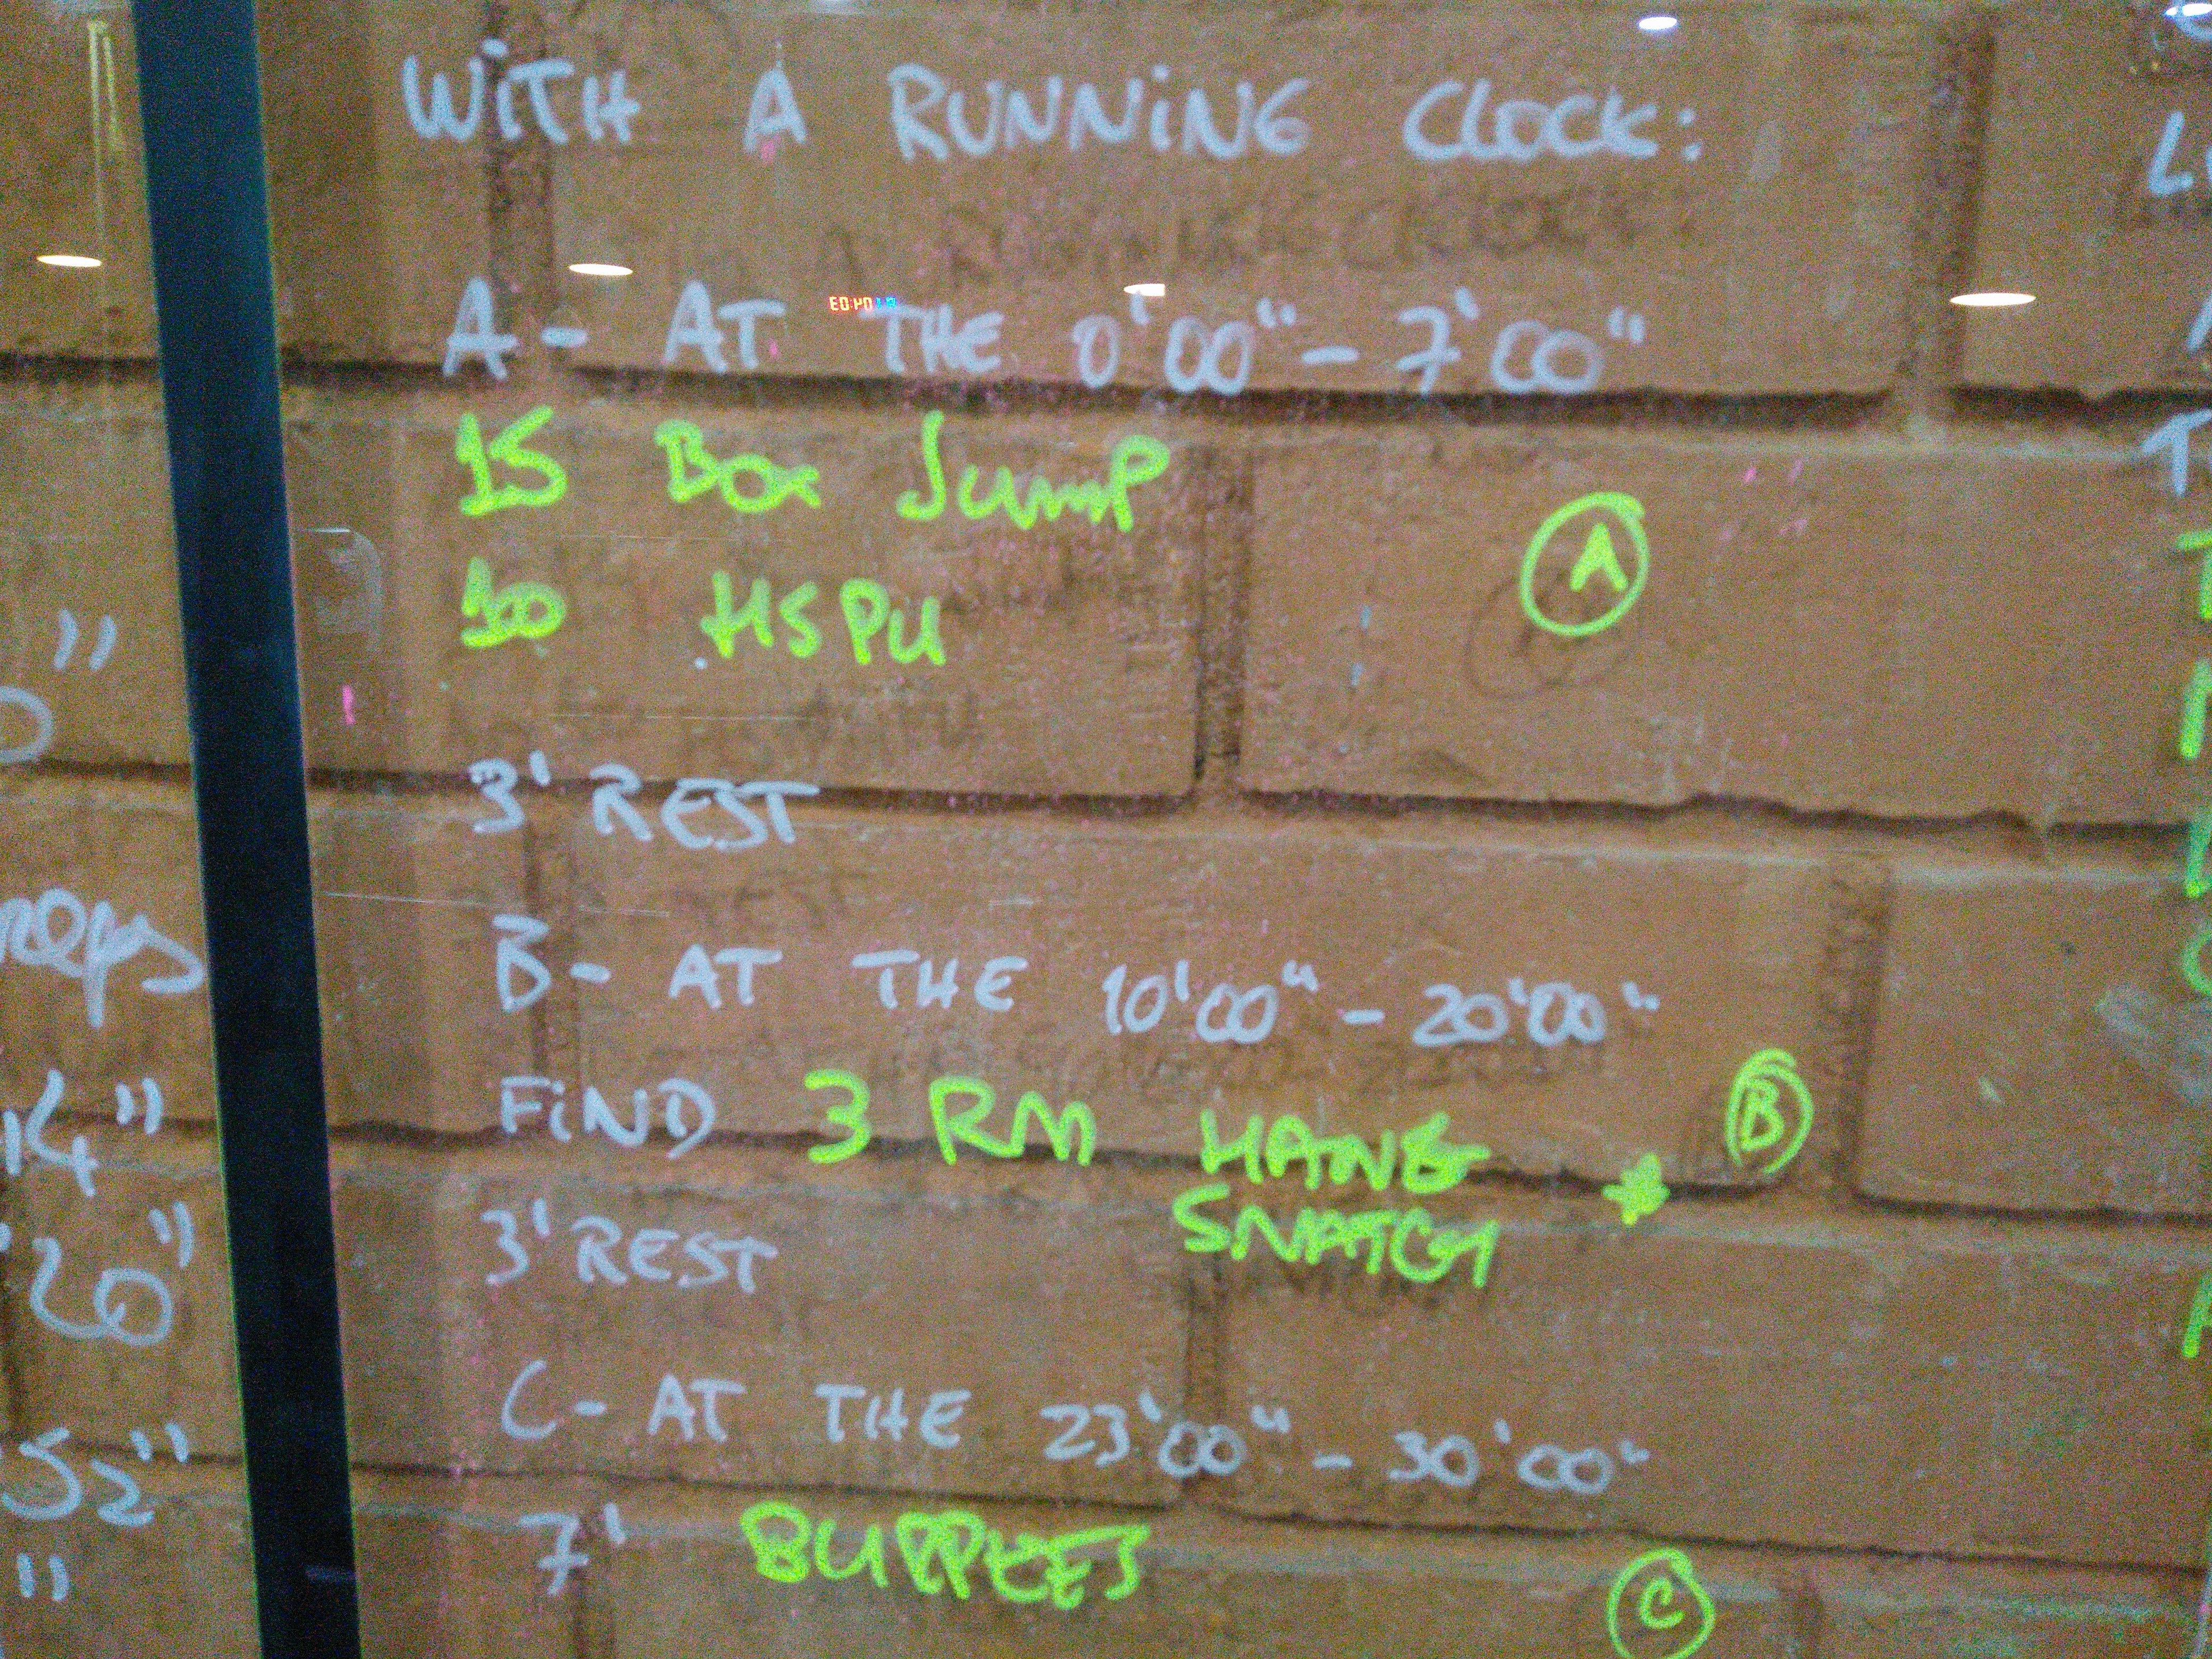 WiTH A RUNNiNG CLOCK:
A- AT THE 0'00"- 7'00"
15 Box Jump
10 HSPU
A
3' REST
B- AT THE 10'00" - 20'00"
FiND 3 RM HANG
SNATCH *
B
3' REST
C- AT THE 23'00" - 30'00"
7' BURPEES
C
reps